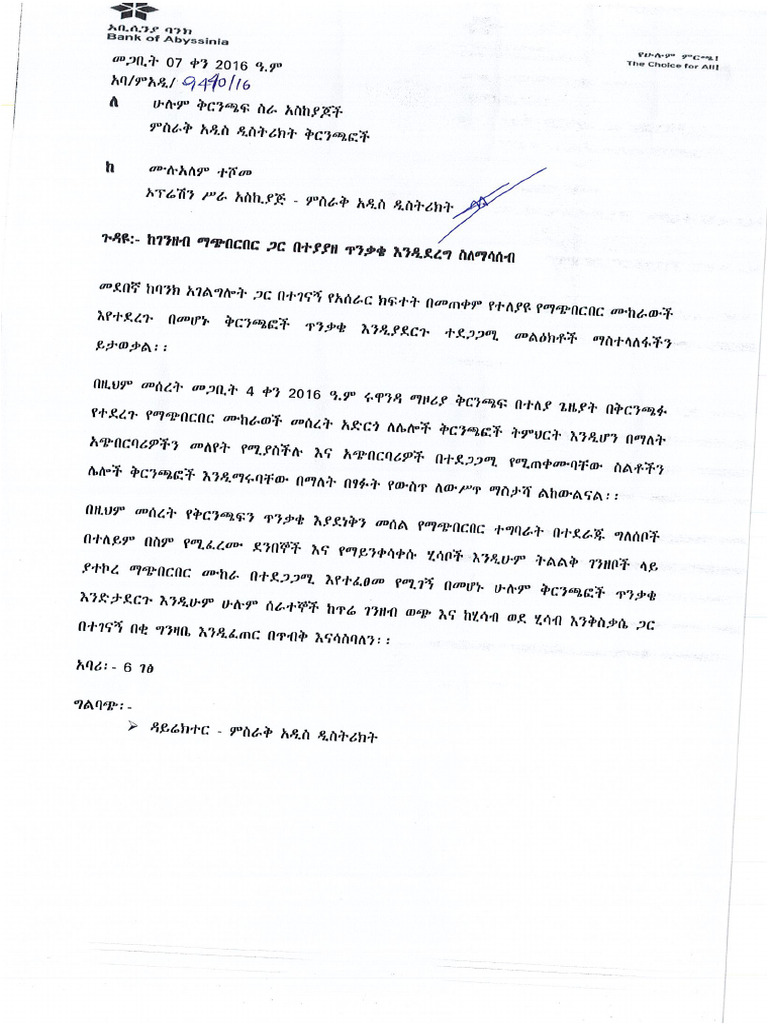 አቢሲንያ ባንክ
Bank of Abyssinia
የሁሉም ምርጫ!
The Choice for All!
መጋቢት 07 ቀን 2016 ዓ.ም
አባ/ምአዲ/ 9440/16
ለ ሁሉም ቅርንጫፍ ስራ አስከያጆች
ምስራቅ አዲስ ዲስትሪክት ቅርንጫፎች
ከ ሙሉአለም ተሾመ
ኦፕሬሽን ሥራ አስኪያጅ - ምስራቅ አዲስ ዲስትሪክት
ጉዳዩ:- ከገንዘብ ማጭበርበር ጋር በተያያዘ ጥንቃቄ እንዲደረግ ስለማሳሰብ
መደበኛ ከባንክ አገልግሎት ጋር በተገናኝ የአሰራር ክፍተት በመጠቀም የተለያዩ የማጭበርበር ሙከራውች
እየተደረጉ በመሆኑ ቅርንጫፎች ጥንቃቄ እንዲያደርጉ ተደጋጋሚ መልዕክቶች ማስተላለፋችን
ይታወቃል፡፡
በዚህም መሰረት መጋቢት 4 ቀን 2016 ዓ.ም ሩዋንዳ ማዞሪያ ቅርንጫፍ በተለያ ጊዜያት በቅርንጫፉ
የተደረጉ የማጭበርበር ሙከራወች መሰረት አድርጎ ለሌሎች ቅርንጫፎች ትምህርት እንዲሆን በማለት
አጭበርባሪዎችን መለየት የሚያስችሉ እና አጭበርባሪዎች በተደጋጋሚ የሚጠቀሙባቸው ስልቶችን
ሌሎች ቅርንጫፎች እንዲማሩባቸው በማለት በፃፉት የውስጥ ለውሥጥ ማስታሻ ልከውልናል፡፡
በዚህም መሰረት የቅርንጫፍን ጥንቃቄ እያደነቅን መሰል የማጭበርበር ተግባራት በተደራጁ ግለሰቦች
በተለይም በስም የሚፈረሙ ደንበኞች እና የማይንቀሳቀሱ ሂሳቦች እንዲሁም ትልልቅ ገንዘቦች ላይ
ያተኮረ ማጭበርበር ሙከራ በተደጋጋሚ እየተፈፀመ የሚገኝ በመሆኑ ሁሉም ቅርንጫፎች ጥንቃቄ
እንድታደርጉ እንዲሁም ሁሉም ሰራተኞች ከጥሬ ገንዘብ ወጭ እና ከሂሳብ ወደ ሂሳብ እንቅስቃሴ ጋር
በተገናኝ በቂ ግንዛቤ እንዲፈጠር በጥብቅ እናሳስባለን፡፡
አባሪ፡- 6 ገፅ
ግልባጭ፡-
➢ ዳይሬክተር - ምስራቅ አዲስ ዲስትሪክት